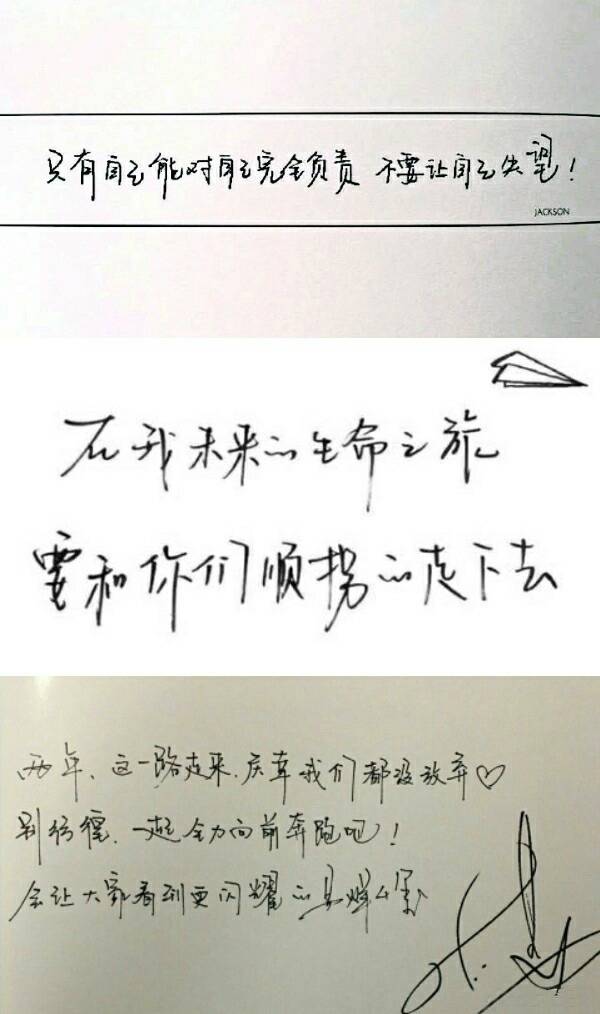 只有自己能对自己完全负责 不要让自己失望!
JACKSON
在我未来的生命之旅
要和你们顺拐的走下去
两年、这一路走来、庆幸我们都没放弃♡
别彷徨、一起全力向前奔跑吧!
会让大家看到更闪耀的